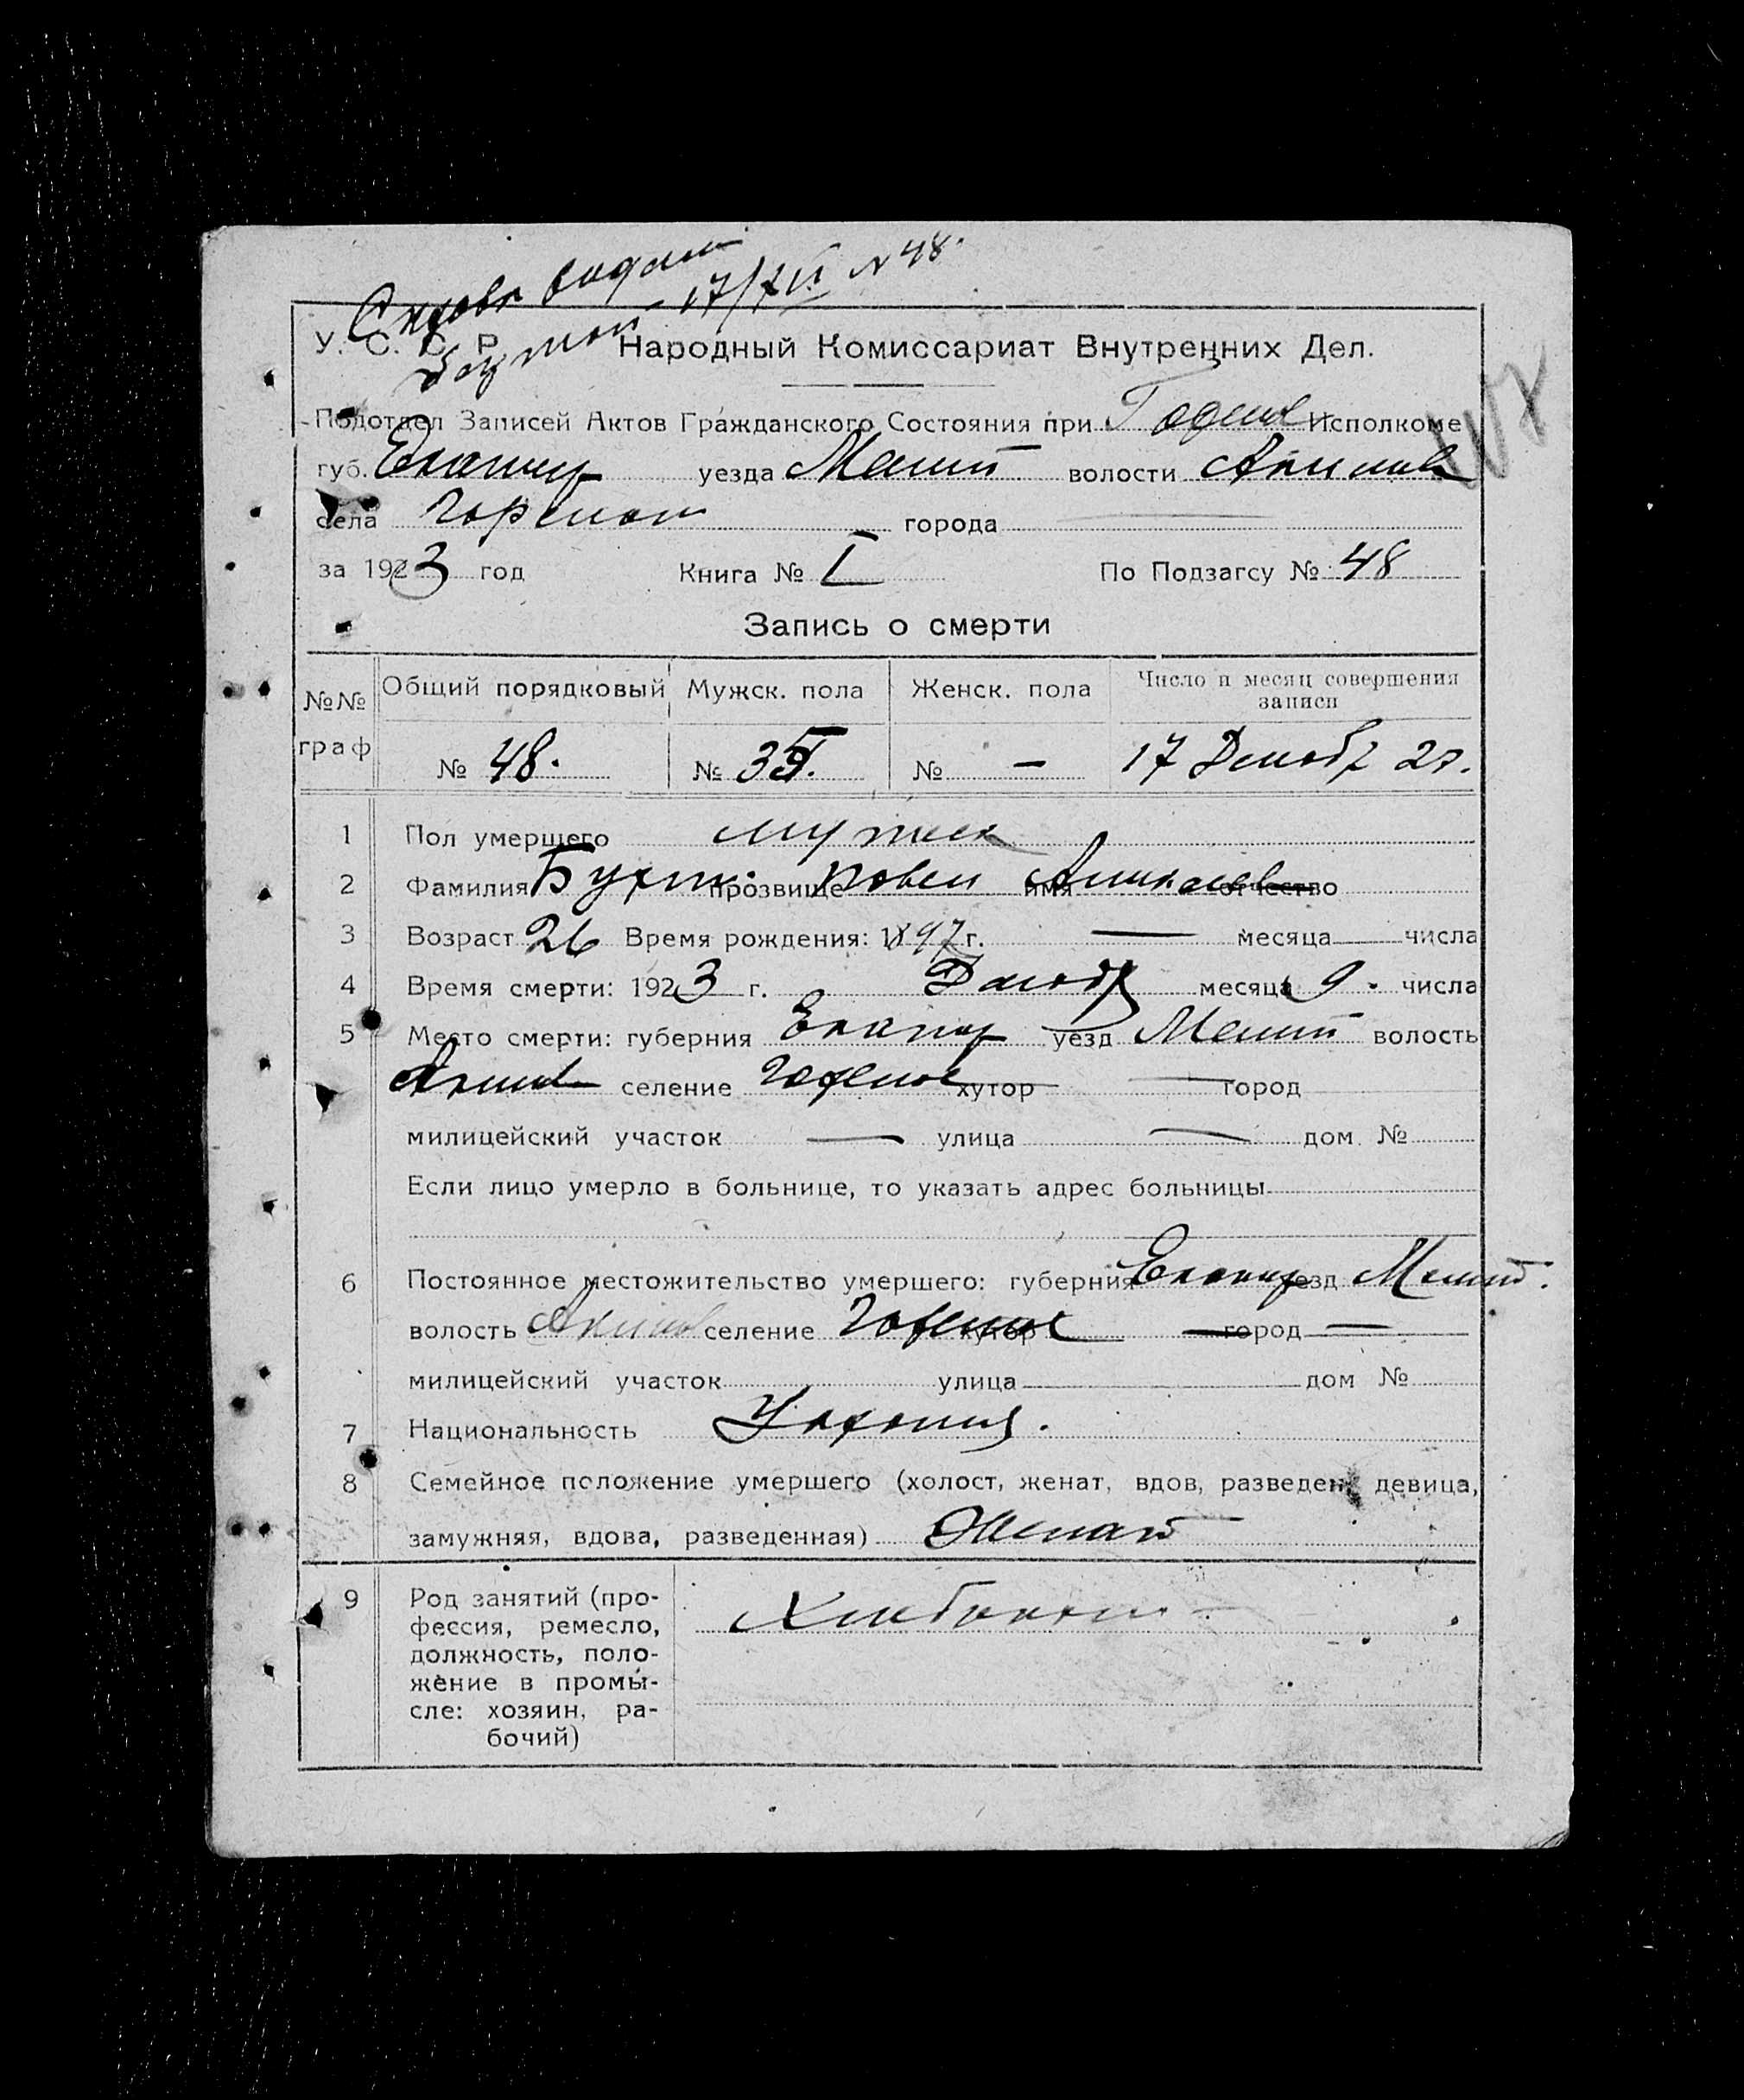 17/XII N 48.
У. С. С. Р. Народный Комиссариат Внутренних Дел.
Подотдел Записей Актов Гражданского Состояния при Исполкоме
губ. Екатер уезда Мелит волости Акимов
села города —
за 1923 год Книга № I По Подзагсу № 48
Запись о смерти
№№ граф Общий порядковый Мужск. пола Женск. пола Число и месяц совершения записи
№ 48. № 35. № — 17 Декабр 23.
1 Пол умершего мужск
2 Фамилия прозвище имя отчество
3 Возраст 26 Время рождения: 1897 г. — месяца числа
4 Время смерти: 1923 г. Декабр месяца 9. числа
5 Место смерти: губерния Екатер уезд Мелит волость
Аким селение хутор — город
милицейский участок — улица — дом №
Если лицо умерло в больнице, то указать адрес больницы
6 Постоянное местожительство умершего: губерния Екатер уезд Мелит.
волость Акимов селение хутор — город —
милицейский участок улица дом №
7 Национальность Украинец.
8 Семейное положение умершего (холост, женат, вдов, разведен, девица,
замужняя, вдова, разведенная) Женат
9 Род занятий (про-
фессия, ремесло,
должность, поло-
жение в промы-
сле: хозяин, ра-
бочий)